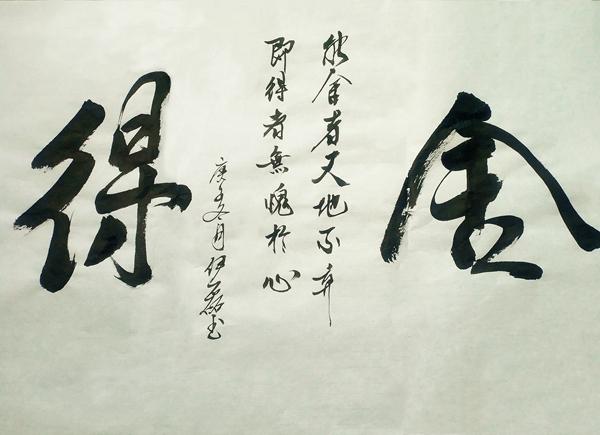 舍
能舍者天地不弃
即得者無愧於心
庚子冬月
得